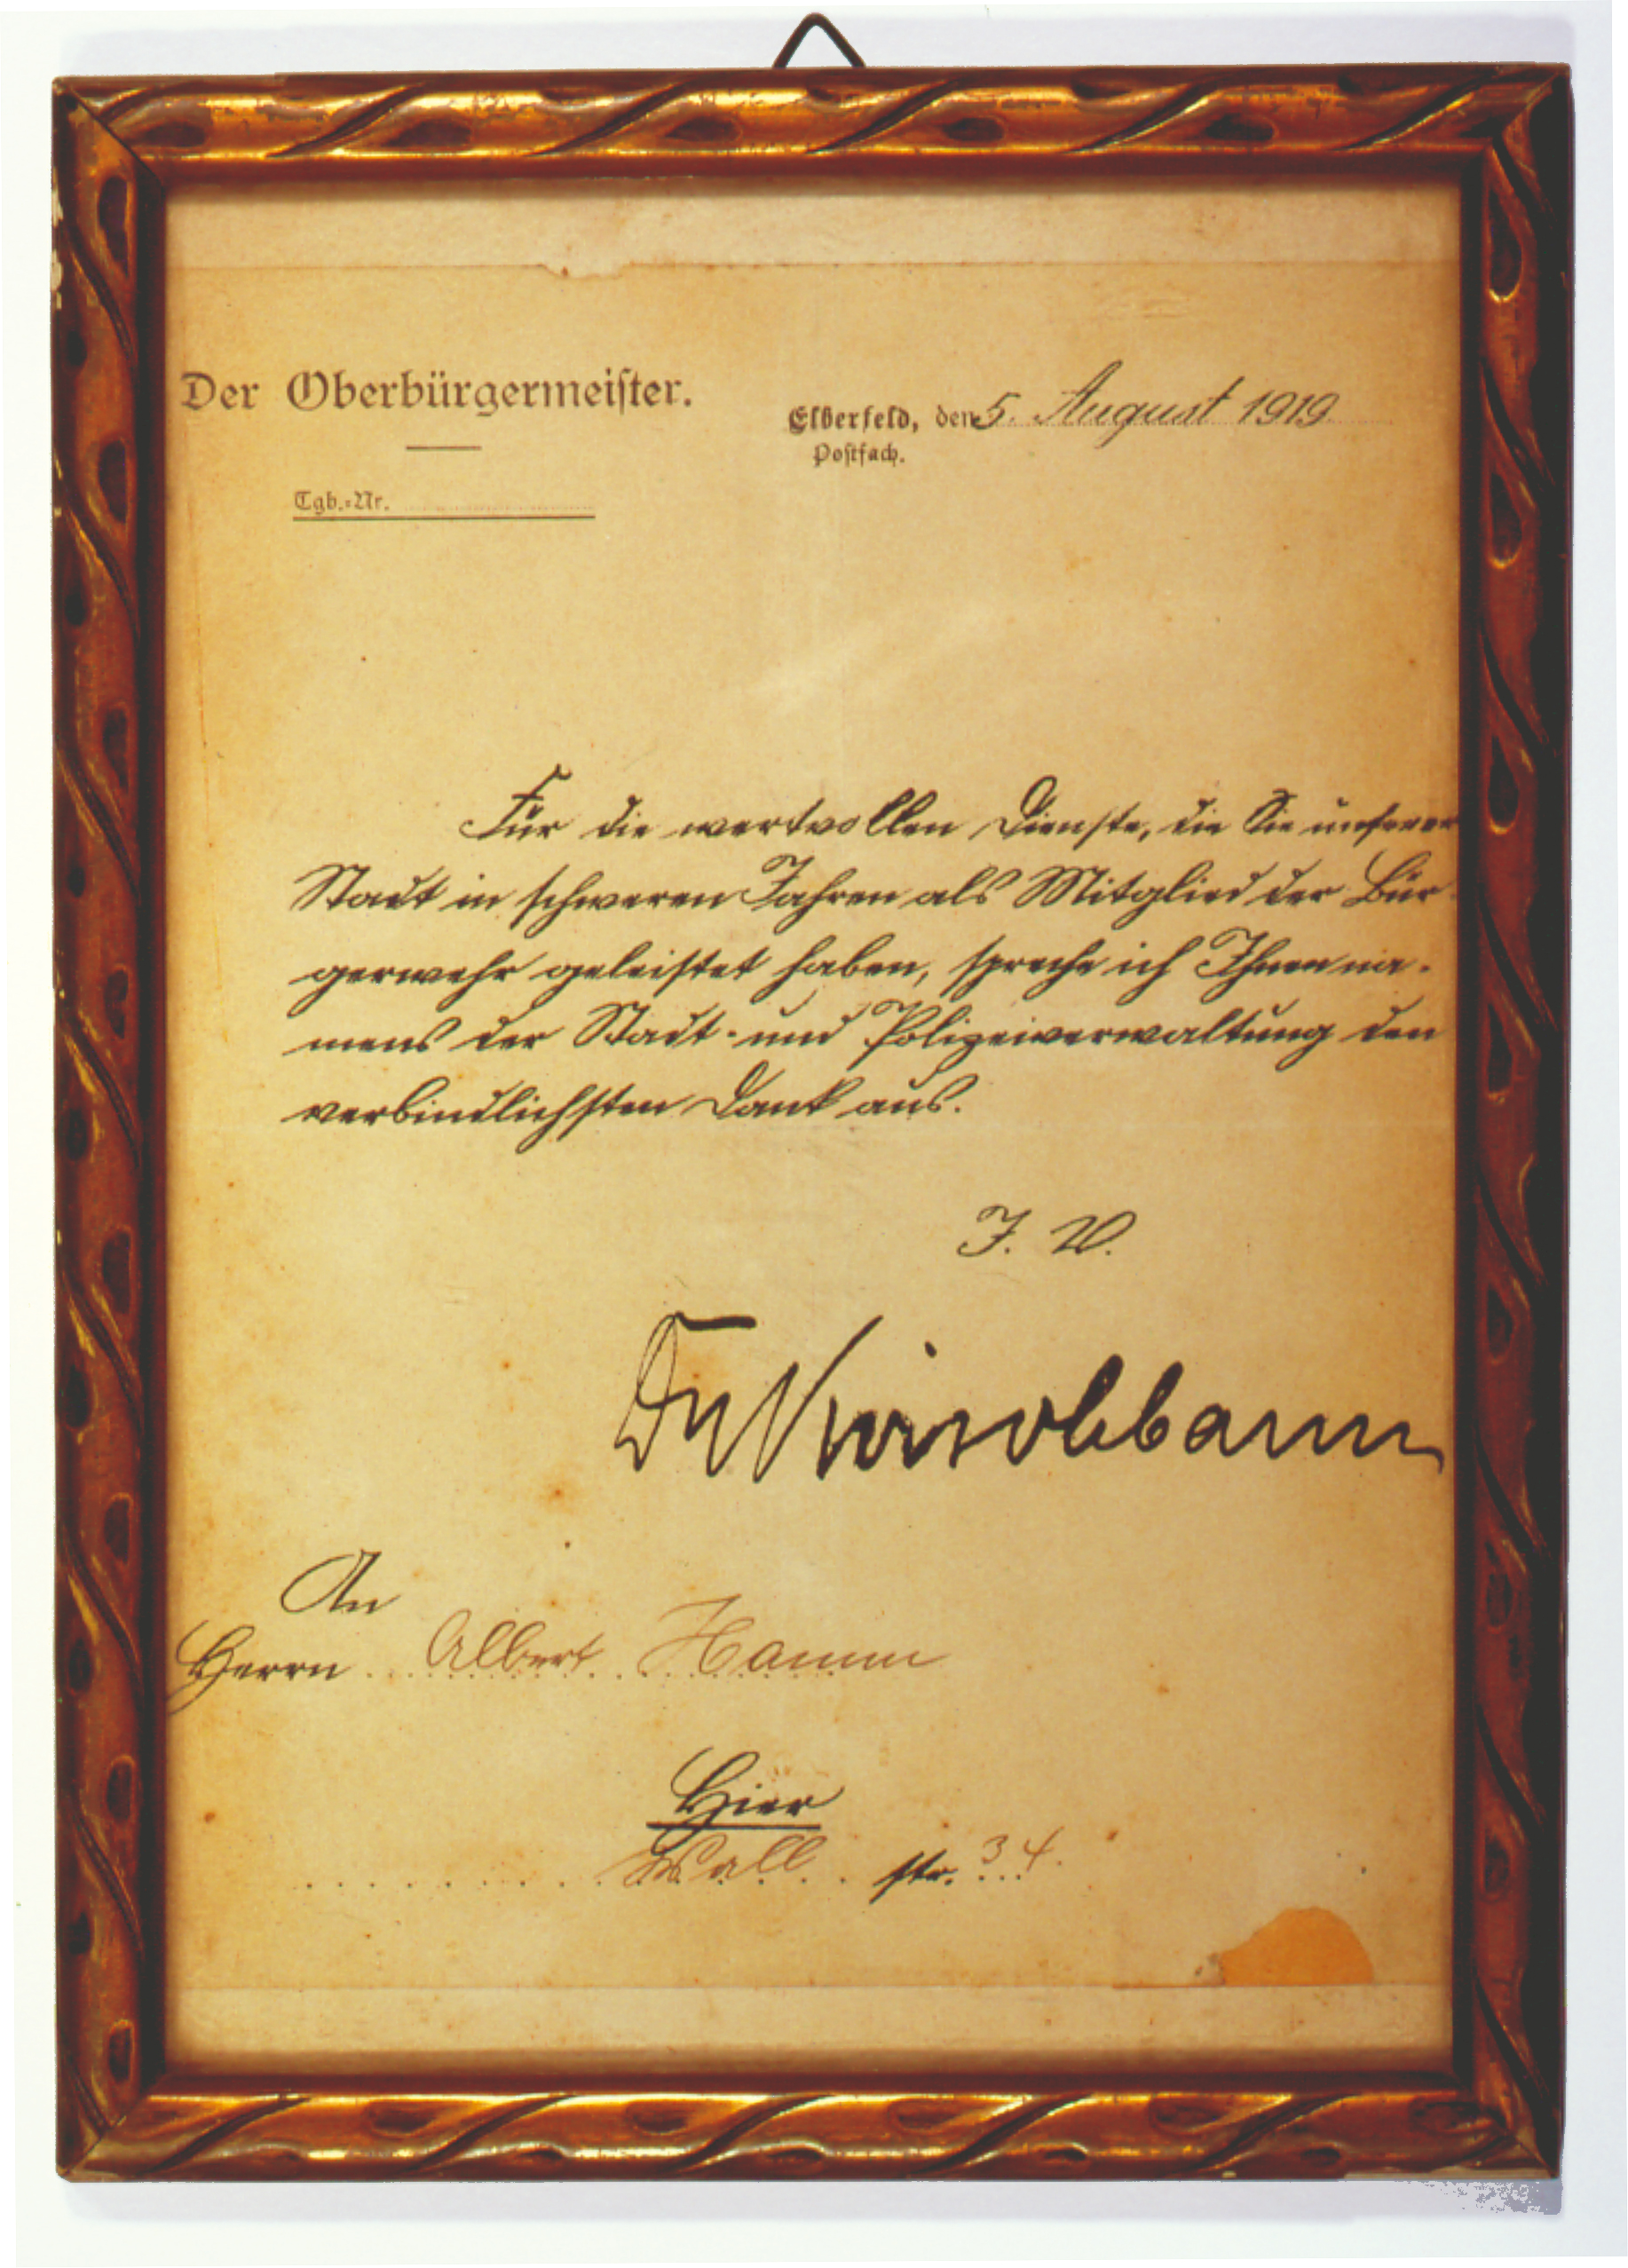 Der Oberbürgermeister.
Elberfeld, den 5. August 1919
Postfach.
Tgb.-Nr.
Für die wertvollen Dienste, die Sie unserer
Stadt in schweren Jahren als Mitglied der Bür-
gerwehr geleistet haben, spreche ich Ihnen na-
mens der Stadt- und Polizeiverwaltung den
verbindlichsten Dank aus.
J. V.
Dr
An
Herrn Albert Hamm
Hier
Wall str. 34.